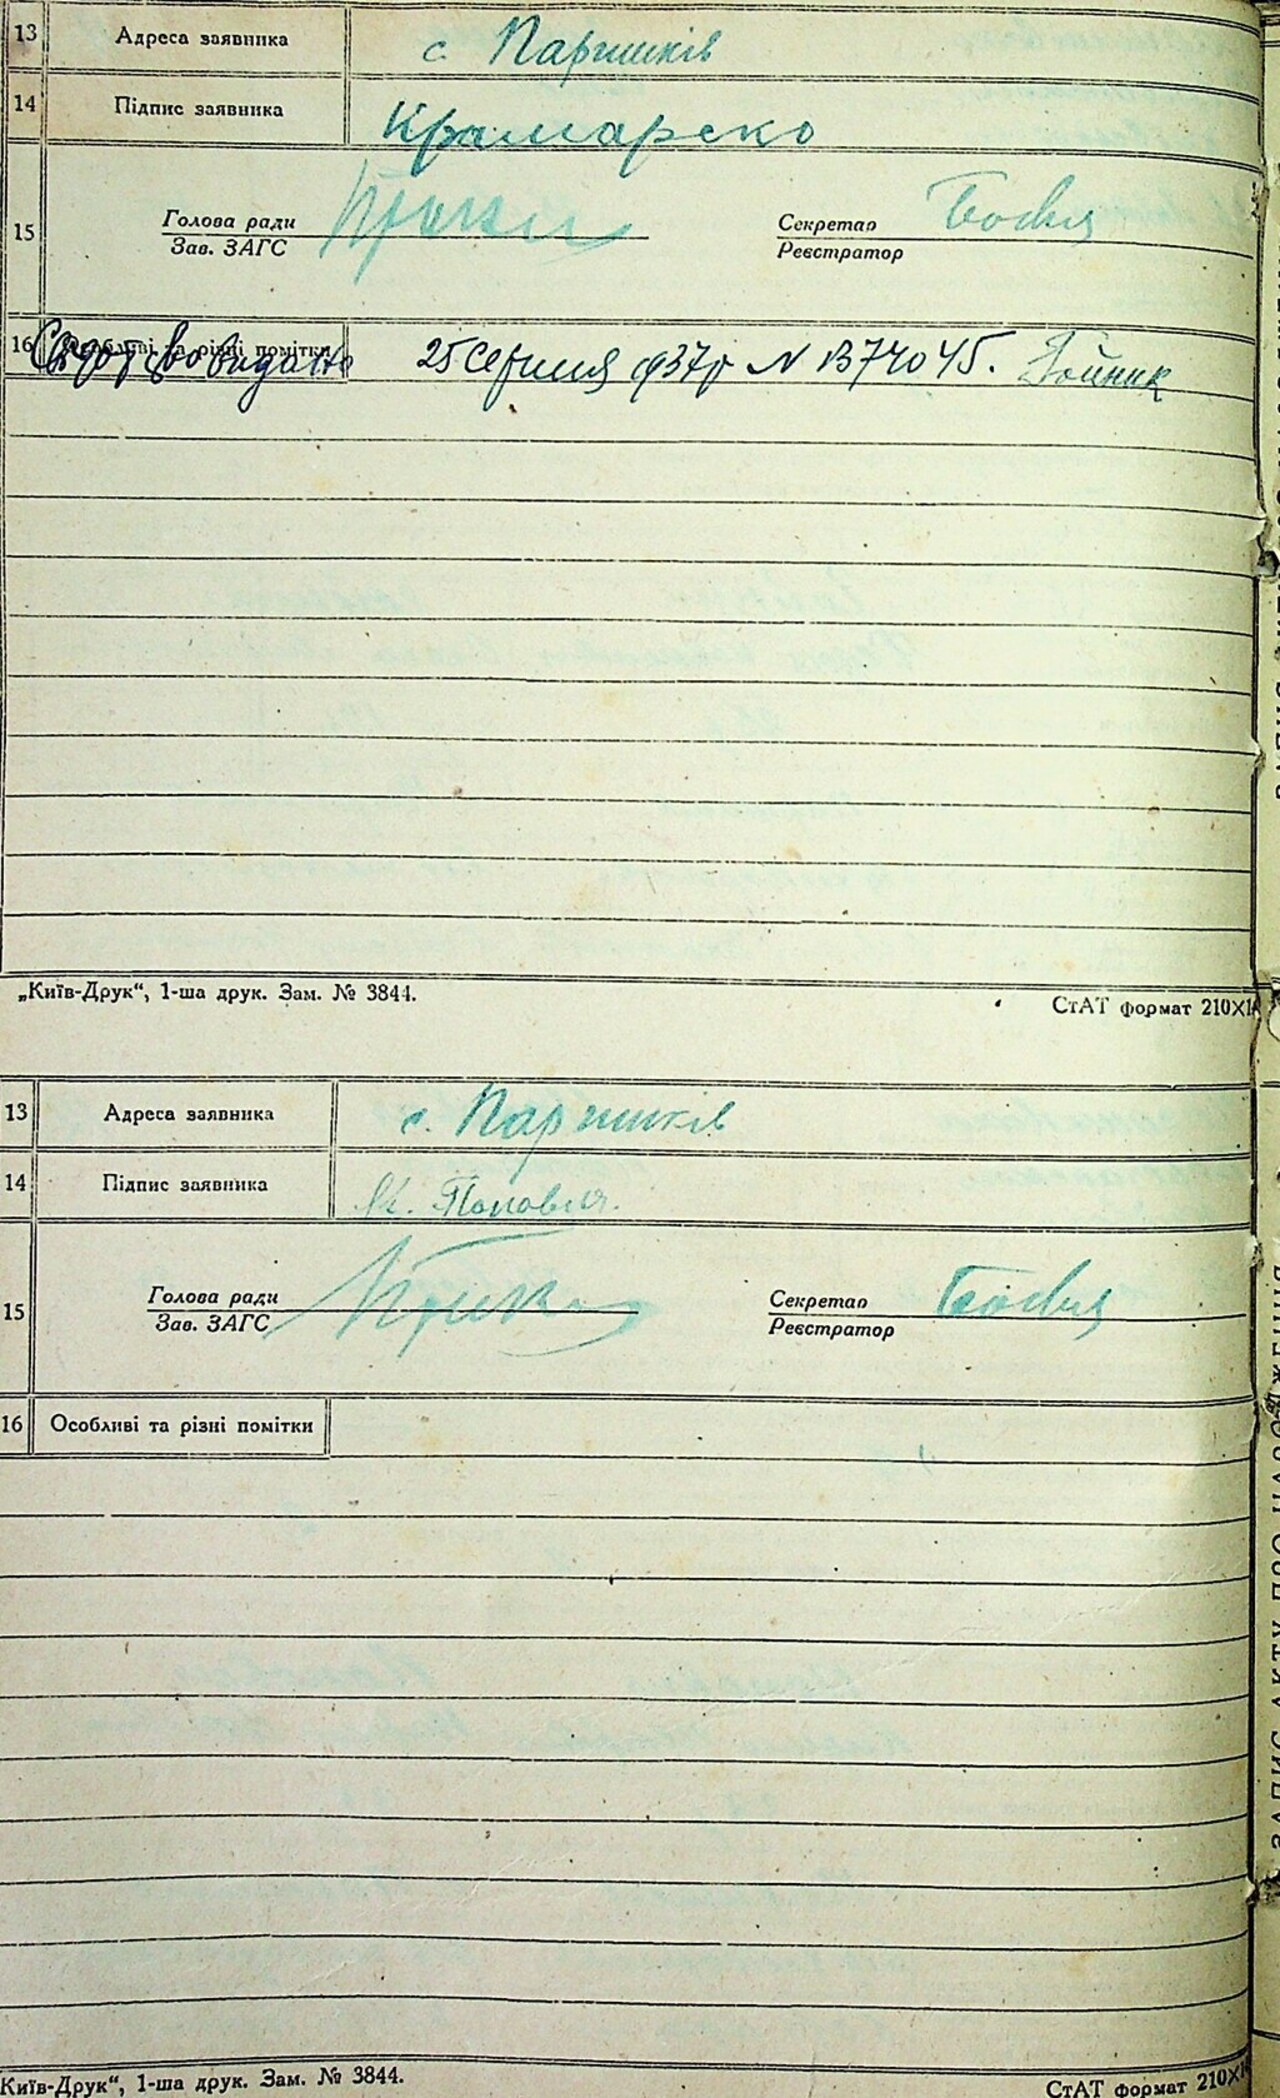 13 Адреса заявника с. Паришків
14 Підпис заявника Крамарско
15 Голова ради Секретар
Зав. ЗАГС Реєстратор
16 Особливі та різні помітки Свідотство видано 25 серпня 1937р N В74045. Дойник
„Київ-Друк“, 1-ша друк. Зам. № 3844. СтАТ формат 210X1
13 Адреса заявника с. Паришків
14 Підпис заявника Попович.
15 Голова ради Секретар
Зав. ЗАГС Реєстратор
16 Особливі та різні помітки
Київ-Друк“, 1-ша друк. Зам. № 3844. СтАТ формат 210X1